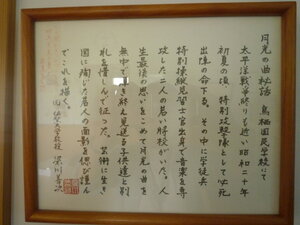 月光の曲秘話　鳥栖国民学校にて
太平洋戦争終りも近い昭和二十年
初夏の頃、特別攻撃隊として必死
出陣の命下る。その中に学徒兵
特別操縦見習士官出身で音楽を専
攻した二人の若い将校がいた。人
生最後の思いをこめて月光の曲を
無中で弾き終え見送る子供達と別
れを惜しんで征った。芸術に生き
国に殉じた若人の面影を偲び謹ん
でこれを描く。